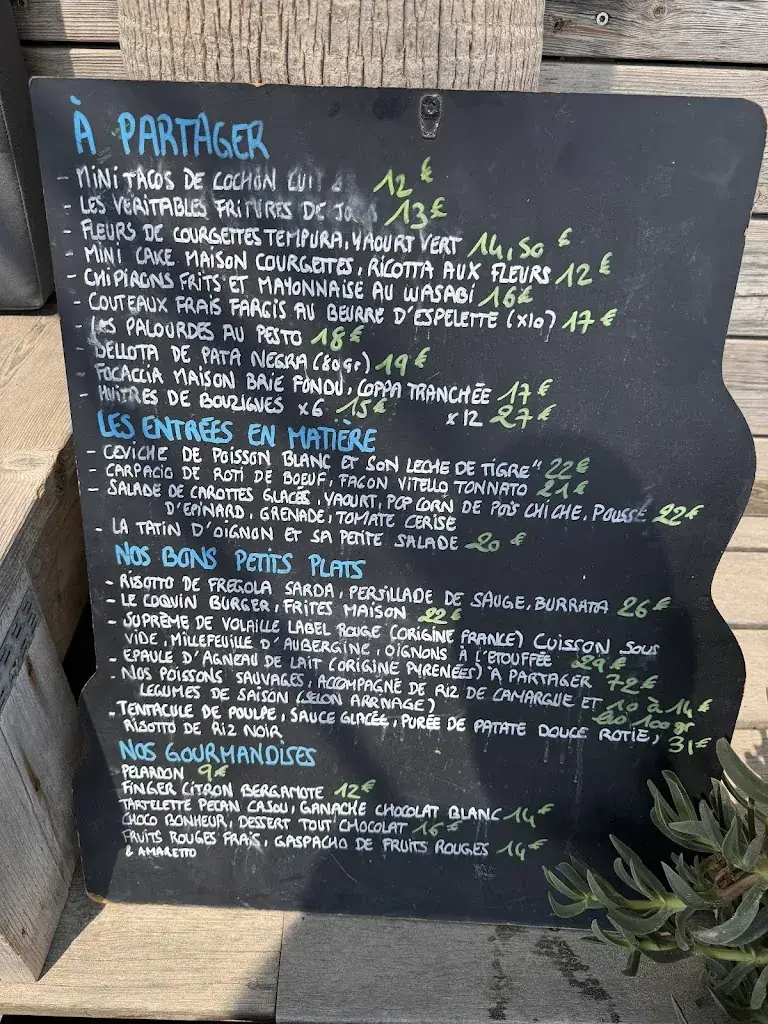 À PARTAGER
- MINI TACOS DE COCHON 12€
- LES VERITABLES FRITURES DE 13€
- FLEURS DE COURGETTES TEMPURA, YAOURT VERT 14,50 €
- MINI CAKE MAISON COURGETTES, RICOTTA AUX FLEURS 12€
- CHIPIRONS FRITS ET MAYONNAISE AU WASABI 16€
- COUTEAUX FRAIS FARCIS AU BEURRE D'ESPELETTE (x10) 17€
- LES PALOURDES AU PESTO 18€
- BELLOTA DE PATA NEGRA (80gr) 19€
- FOCACCIA MAISON BRIE FONDU, COPPA TRANCHÉE 17€
- HUITRES DE BOUZIGUES x6 15€ x12 27€
LES ENTRÉES EN MATIÈRE
- CEVICHE DE POISSON BLANC ET SON LECHE DE TIGRE" 22€
- CARPACIO DE ROTI DE BOEUF, FACON VITELLO TONNATO 21€
- SALADE DE CAROTTES GLACÉS, YAOURT, POP CORN DE POIS CHICHE, POUSSE 22€
D'EPINARD, GRENADE, TOMATE CERISE
- LA TATIN D'OIGNON ET SA PETITE SALADE 20€
NOS BONS PETITS PLATS
- RISOTTO DE FREGOLA SARDA, PERSILLADE DE SAUGE, BURRATA 26€
- LE COQUIN BURGER, FRITES MAISON 22€
- SUPRÈME DE VOLAILLE LABEL ROUGE (ORIGINE FRANCE) CUISSON SOUS
VIDE, MILLEFEUILLE D'AUBERGINE, OIGNONS À L'ETOUFFÉE 29€
- EPAULE D'AGNEAU DE LAIT (ORIGINE PYRENÉES) A PARTAGER 72€
- NOS POISSONS SAUVAGES, ACCOMPAGNÉ DE RIZ DE CAMARGUE ET 10 à 14€
LEGUMES DE SAISON (SELON ARRIVAGE) les 100 gr
- TENTACULE DE POULPE, SAUCE GLACÉE, PURÉE DE PATATE DOUCE ROTIE, 31€
RISOTTO DE RIZ NOIR
NOS GOURMANDISES
PELARDON 9€
FINGER CITRON BERGAMOTE 12€
TARTELETTE PECAN CAJOU, GANACHE CHOCOLAT BLANC 14€
CHOCO BONHEUR, DESSERT TOUT CHOCOLAT 16€
FRUITS ROUGES FRAIS, GASPACHO DE FRUITS ROUGES 14€
& AMARETTO